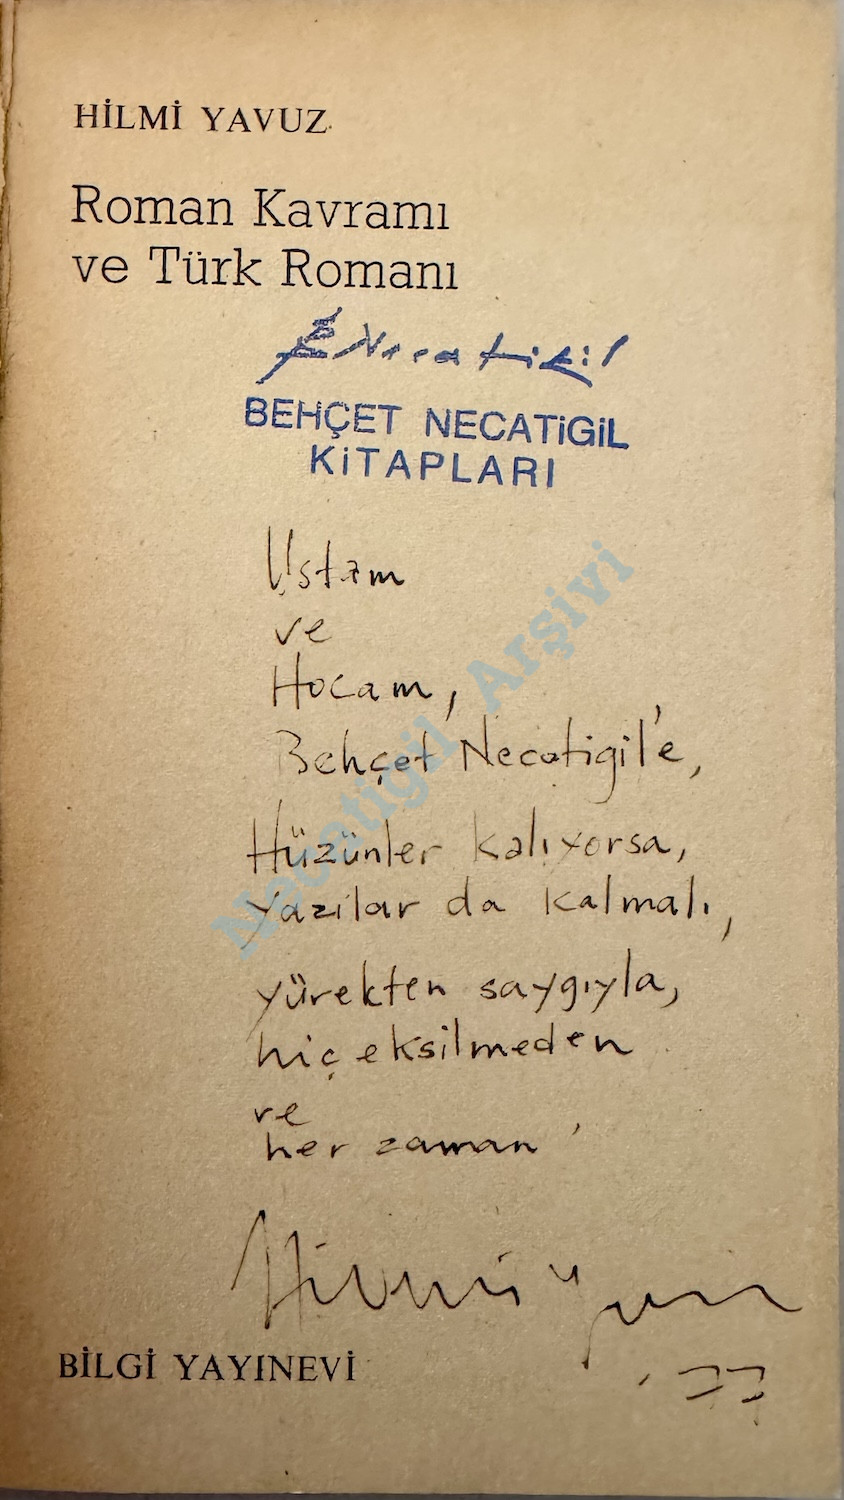 HİLMİ YAVUZ
Roman Kavramı
ve Türk Romanı
BNecatigil
BEHÇET NECATİGİL
KİTAPLARI
Üstam
ve
Hocam,
Behçet Necatigil'e,
Hüzünler kalıyorsa,
yazılar da kalmalı,
yürekten saygıyla,
hiç eksilmeden
ve
her zaman
Hilmi Yavuz
'77
BİLGİ YAYINEVİ
Necatigil Arşivi